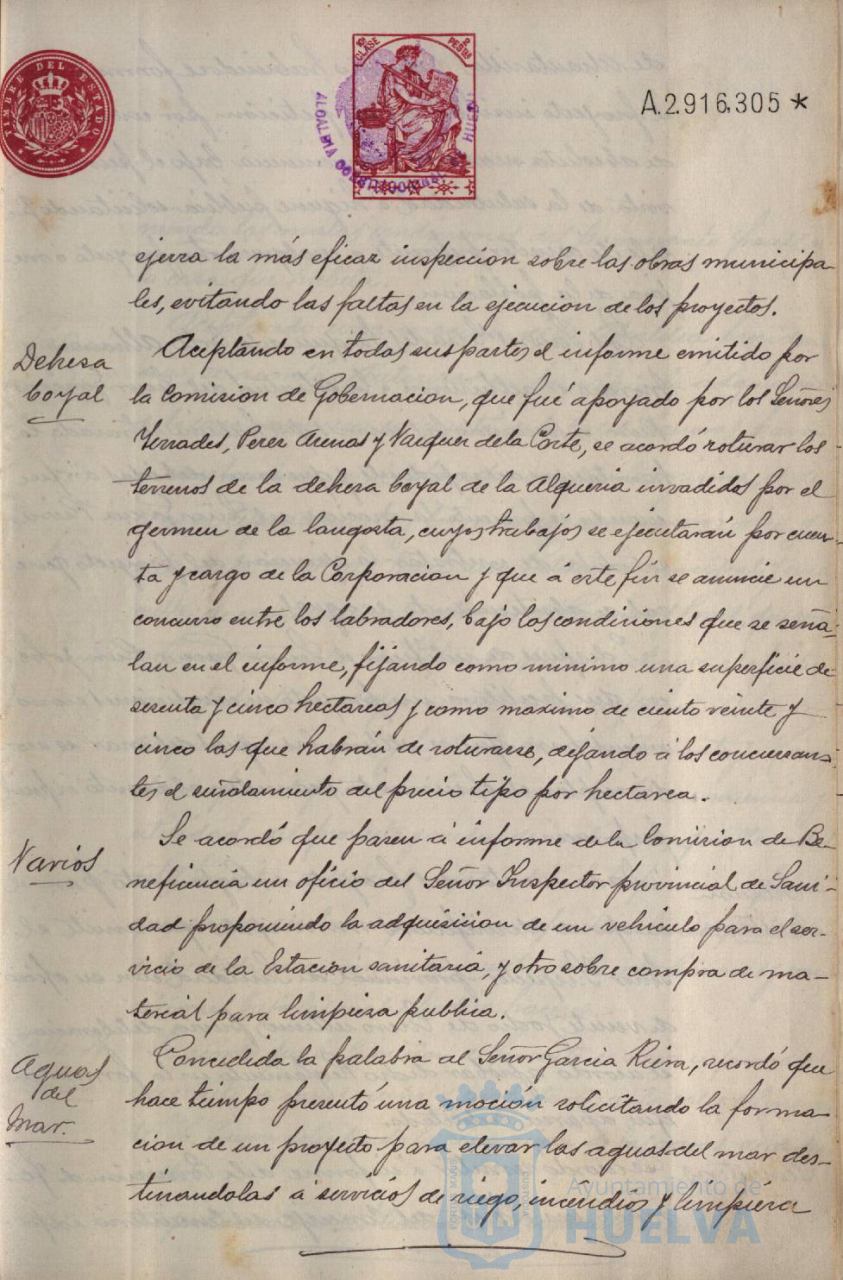 TIMBRE DEL ESTADO
10ª CLASE 2 PESTAS
A.2.916.305 *
ejerza la más eficaz inspeccion sobre las obras municipa-
les, evitando las faltas en la ejecucion de los proyectos.
Dehesa
boyal
Aceptando en todas sus partes el informe emitido por
la Comision de Gobernacion, que fué apoyado por los Señores
Terrades, Perez Arenas y Vazquez de la Corte, se acordó roturar los
terrenos de la dehesa boyal de la Alqueria invadidos por el
germen de la langosta, cuyos trabajos se ejecutarán por cuen-
ta y cargo de la Corporacion y que á este fin se anuncie un
concurso entre los labradores, bajo las condiciones que se seña-
lan en el informe, fijando como minimo una superficie de
sesenta y cinco hectareas y como maximo de ciento veinte y
cinco las que habrán de roturarse, dejando á los concursan-
tes el señalamiento del precio tipo por hectarea.
Varios
Se acordó que pasen á informe de la Comision de Be-
neficencia un oficio del Señor Inspector provincial de Sani-
dad proponiendo la adquisicion de un vehiculo para el ser-
vicio de la Estacion sanitaria, y otro sobre compra de ma-
terial para limpieza publica.
Aguas
del
Mar.
Concedida la palabra al Señor Garcia Riera, recordó que
hace tiempo presentó una moción solicitando la forma-
cion de un proyecto para elevar las aguas del mar des-
tinandolas á servicios de riego, incendios y limpieza
Ayuntamiento de
HUELVA